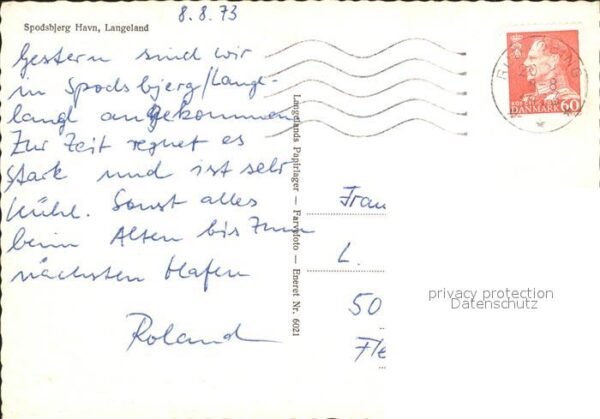 8.8.73
Spodsbjerg Havn, Langeland
Gestern sind wir
in Spodsbjerg/Langl-
langl angekommen
Zur Zeit regnet es
stark und ist sehr
kühl. Sonst alles
beim Alten bis zum
nächsten Hafen
Roland
Langelands Papirlager — Farvefoto — Eneret Nr. 6021
DANMARK 60
Frau
L.
50
Fle
privacy protection
Datenschutz